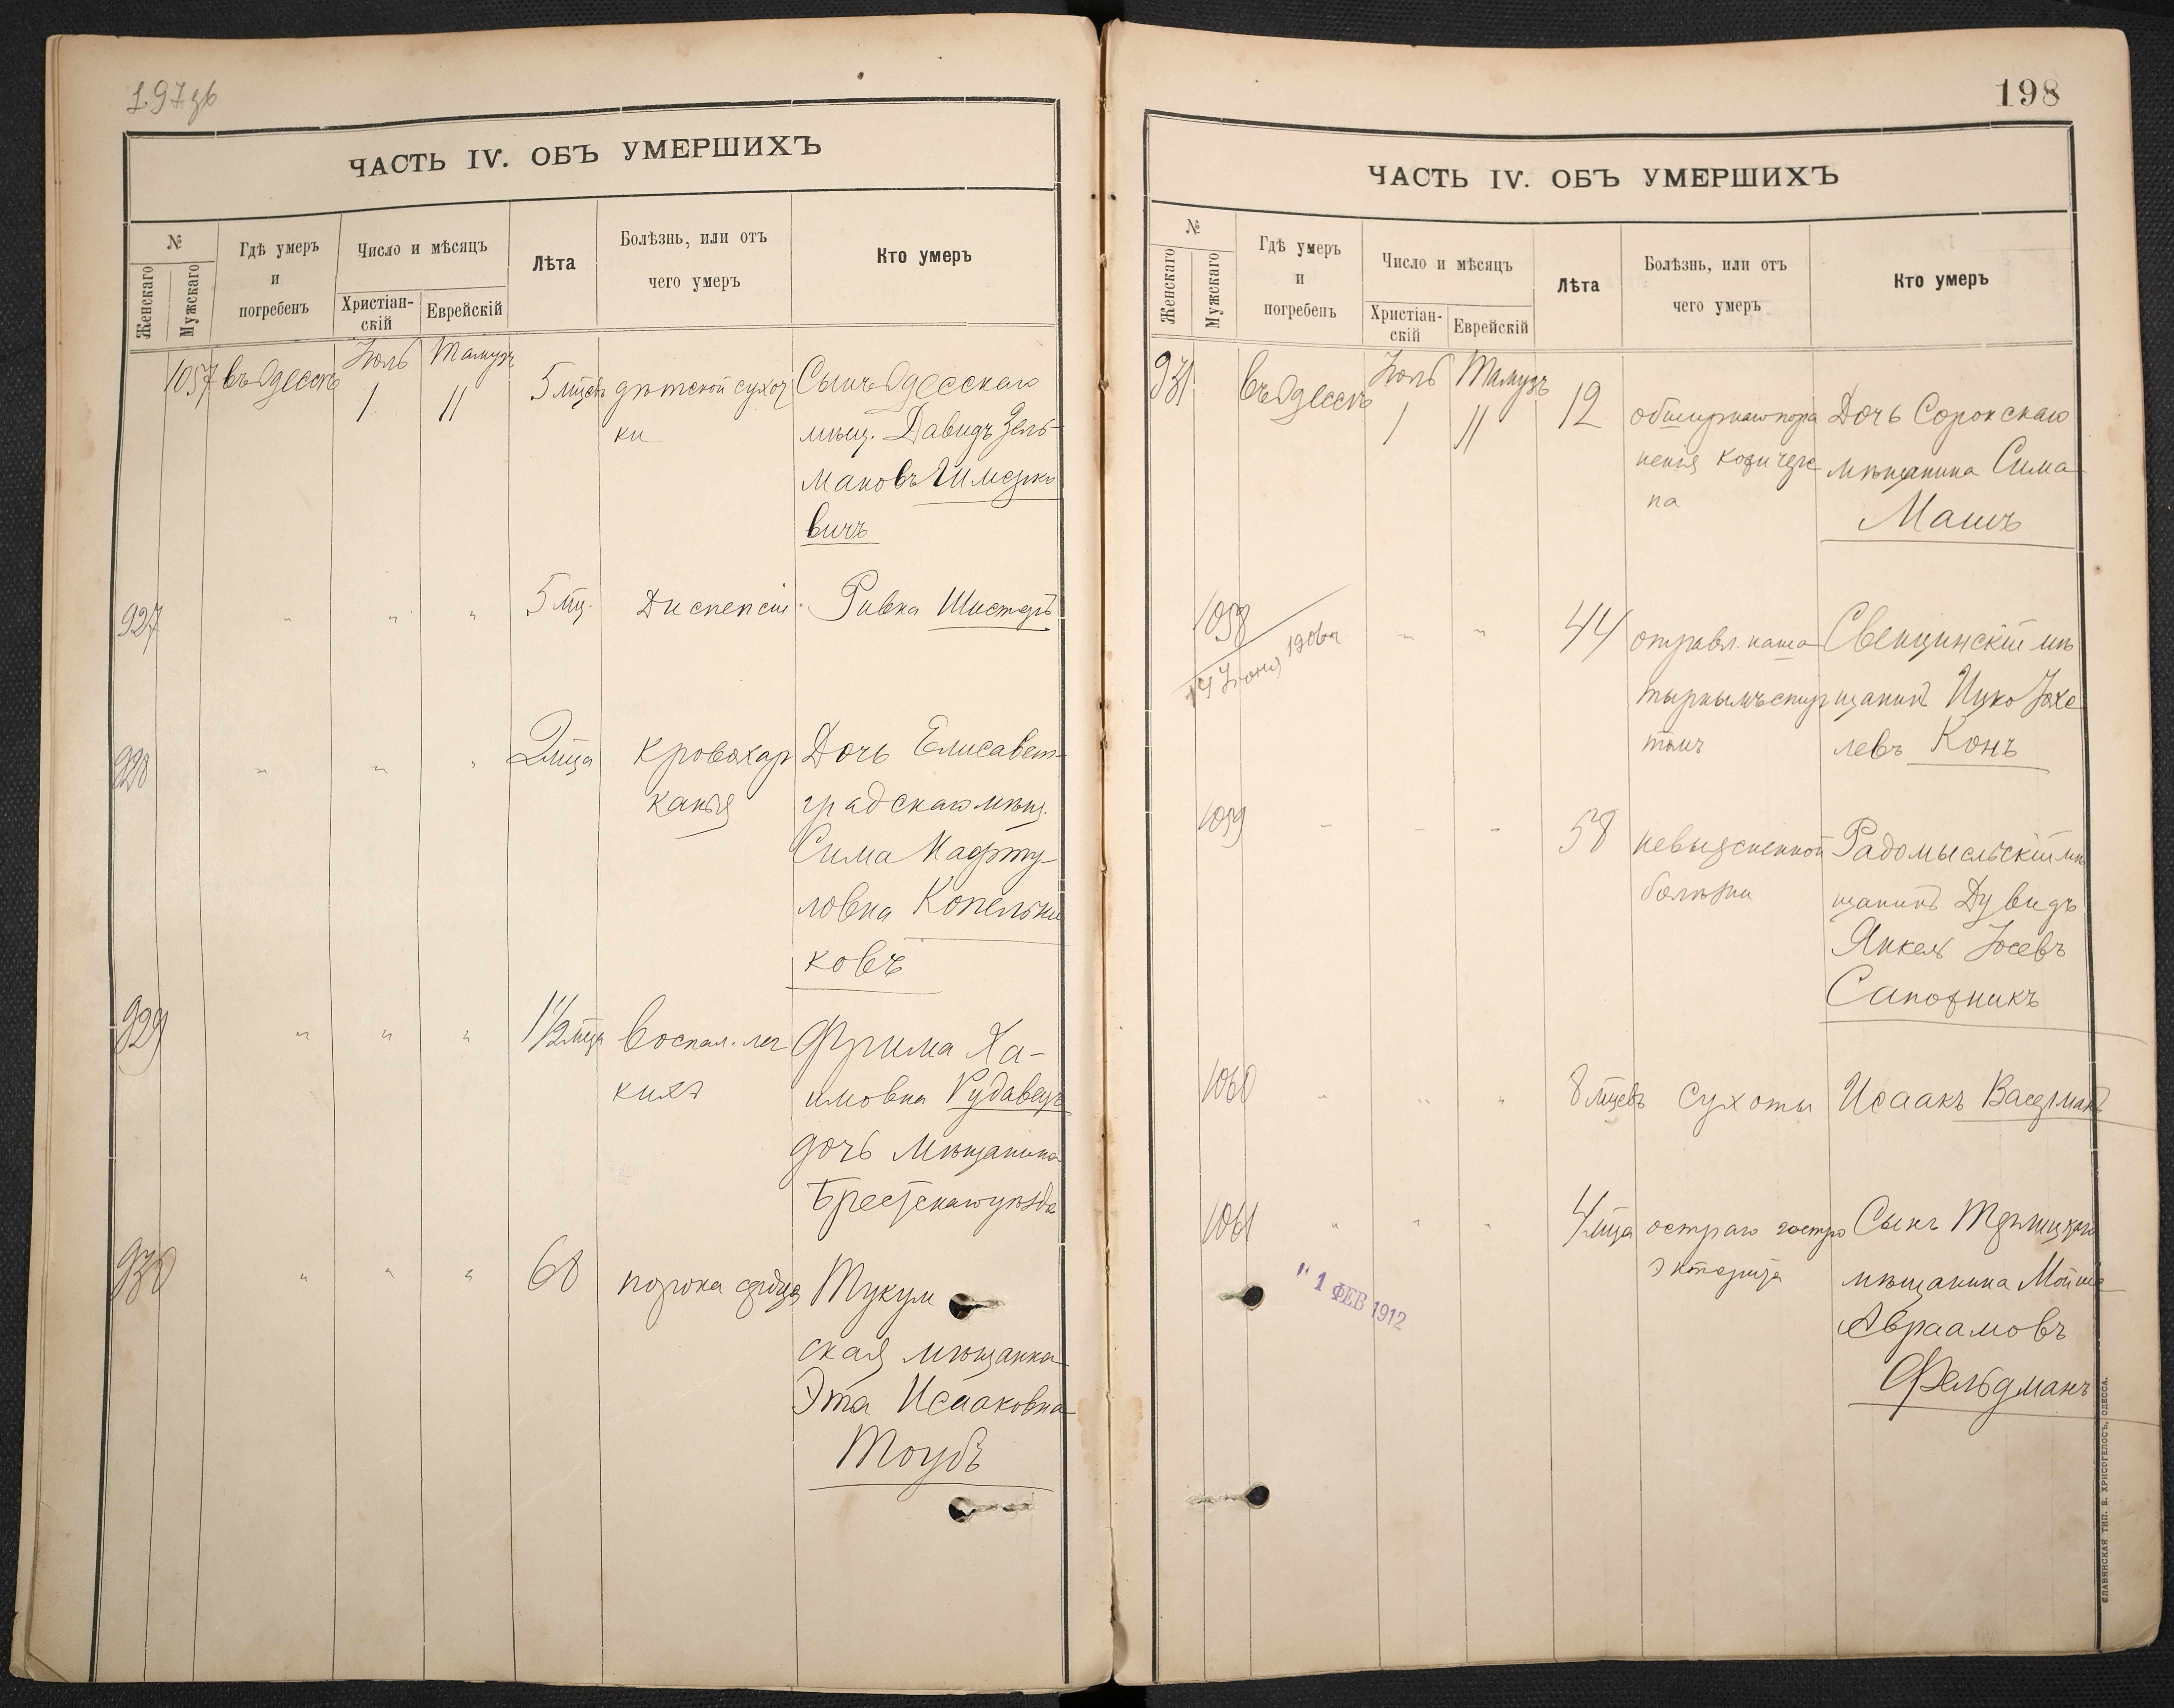 197зв
ЧАСТЬ IV. ОБЪ УМЕРШИХЪ
№
Женскаго
Мужскаго
Гдѣ умеръ
и
погребенъ
Число и мѣсяцъ
Христіан-
скій
Еврейскій
Лѣта
Болѣзнь, или отъ
чего умеръ
Кто умеръ
1057 въ Одессѣ Іюль Тамузъ
1 11
5 мцевъ дѣтской сухот Сынъ Одесскаго
ки мѣщ. Давидъ Зель-
мановъ
вичъ
927 " " " 5 мц. Диспепсіи Ривка
928 " " " 2 мца Кровохар Дочь Елисавет-
канія градскаго мѣщ.
Сима Нафту-
ловна Копельни
ковъ
929 " " " 1 1/2 мца Воспал. лег Фрима Ха-
кихъ имовна Рудавецъ
дочь мѣщанина
Брестскаго уѣзда
930 " " " 68 порока сердца Тукум
ская мѣщанка
Эта Исааковна
Тоубъ
198
ЧАСТЬ IV. ОБЪ УМЕРШИХЪ
№
Женскаго
Мужскаго
Гдѣ умеръ
и
погребенъ
Число и мѣсяцъ
Христіан-
скій
Еврейскій
Лѣта
Болѣзнь, или отъ
чего умеръ
Кто умеръ
931 въ Одессѣ Іюль Тамузъ
1 11
12 обширнаго пора Дочь Сорокскаго
ненія кожи чере мѣщанина Сима
па Машъ
1058 " " 44 отравл. наша Свенцинскій мѣ
14 Іюня 1906 г
тырнымъ спир щанинъ Ицко Іохе
томъ левъ Конъ
1059 " " " 58 невыясненной Радомысльскій мѣ
болѣзни щанинъ Дувидъ
Янкель Іосевъ
Сапожникъ
1060 " " " 8 мцевъ Сухоты Исаакъ Вассерманъ
1061 " " " 4 мца остраго гастро Сынъ
энтерита мѣщанина Мойше
Авраамовъ
Фельдманъ
" 1 ФЕВ 1912
СЛАВЯНСКАЯ ТИП. Е. ХРИСОГЕЛОСЪ, ОДЕССА.